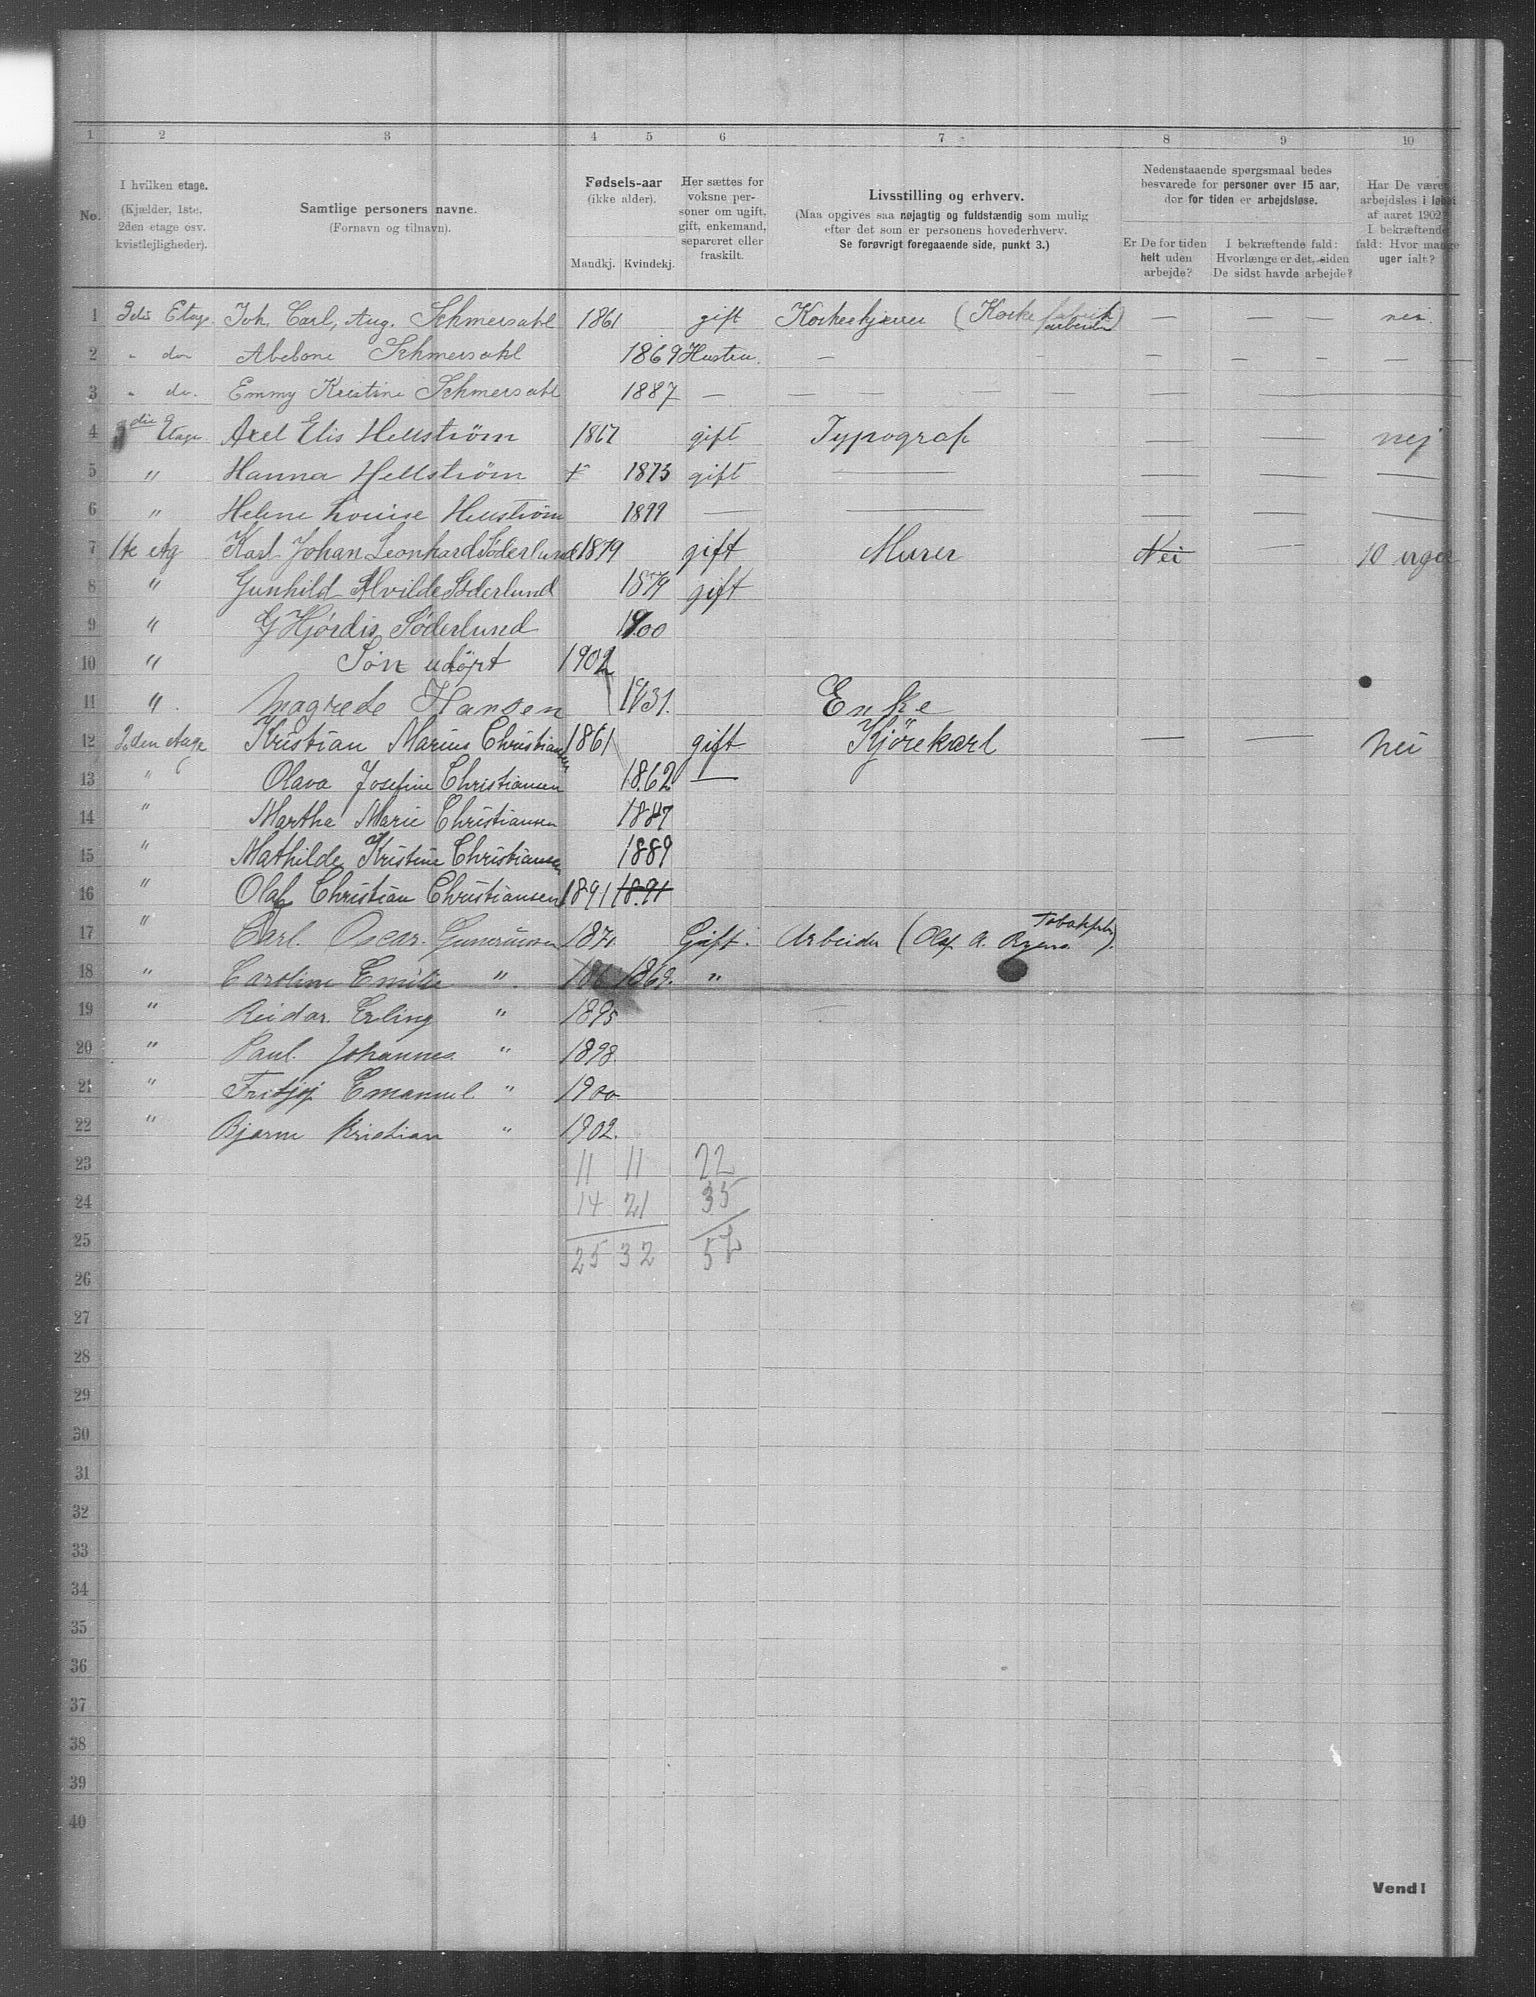 1 2 3 4 5 6 7 8 9 10
No.
I hvilken etage.
(Kjælder, 1ste, 2den etage osv. kvistlejligheder).
Samtlige personers navne.
(Fornavn og tilnavn).
Fødsels-aar
(ikke alder).
Mandkj. Kvindekj.
Her sættes for voksne personer om ugift, gift, enkemand, separeret eller fraskilt.
Livsstilling og erhverv.
(Maa opgives saa nøjagtig og fuldstændig som mulig efter det som er personens hovederhverv.
Se forøvrigt foregaaende side, punkt 3.)
Nedenstaaende spørgsmaal bedes besvarede for personer over 15 aar, der for tiden er arbejdsløse.
Er De for tiden helt uden arbejde?
I bekræftende fald: Hvorlænge er det, siden De sidst havde arbejde?
Har De været arbejdsløs i løbet af aaret 1902? I bekræftende fald: Hvor mange uger ialt?
1 3die Etage. Joh. Carl, Aug. Schmersahl 1861 gift Korkeskjærer (Korkefabrik arbeider) — — — nei.
2 " do Abelone Schmersahl 1869 Hustru. — — — — — —
3 " do. Emmy Kristine Schmersahl 1887 — — — — — — — — —
4 3die Etage Axel Elis Hellstrøm 1867 gift Typograf — — nej
5 " Hanna Hellstrøm + 1873 gift — — — —
6 " Helene Louise Hellstrøm 1899 — — — — —
7 1te etg Karl Johan Leonhard Søderlund 1879 gift Murer Nei — 10 uger
8 " Gunhild Alvilde Søderlund 1879 gift
9 " G Hjørdis Søderlund 1900
10 " Søn udøpt 1902
11 " Magrede Hansen 1831. Enke
12 2den etage Kristian Marius Christiansen 1861 gift Kjørekarl — — Nei
13 " Olava Josefine Christiansen 1862 —
14 " Martha Marie Christiansen 1887
15 " Mathilde Kristine Christiansen 1889
16 " Olaf Christian Christiansen 1891 1891
17 " Carl. Oscar. Gunerussen 1871. Gift. Arbeider (Olaf. A. Ryens. Tobakfabr).
18 " Caroline Emilie ". 186 1869. "
19 " Reidar. Erling " 1895
20 " Paul. Johannes. " 1898.
21 " Fritjof Emanuel. " 1900
22 " Bjarne Kristian " 1902.
23 11 11 22
24 14 21 35
25 25 32 57
26
27
28
29
30
31
32
33
34
35
36
37
38
39
40
Vend!